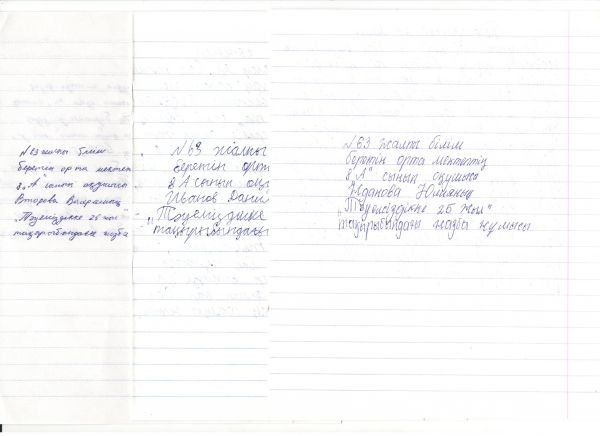 №63 жалпы білім
беретін орта мектеп
8 „А" сынып оқушысы
Второва
„Тәуелсіздікке 25 жыл"
тақырыбындағы жазба
№63 жалпы
беретін орта
8 А сынып оқу
Иванов Дани
„Тәуелсіздікке
тақырыбындағы
№63 жалпы білім
беретін орта мектептің
8 „А" сынып оқушысы
Жданова
„Тәуелсіздікке 25 жыл"
тақырыбындағы жазба жұмысы